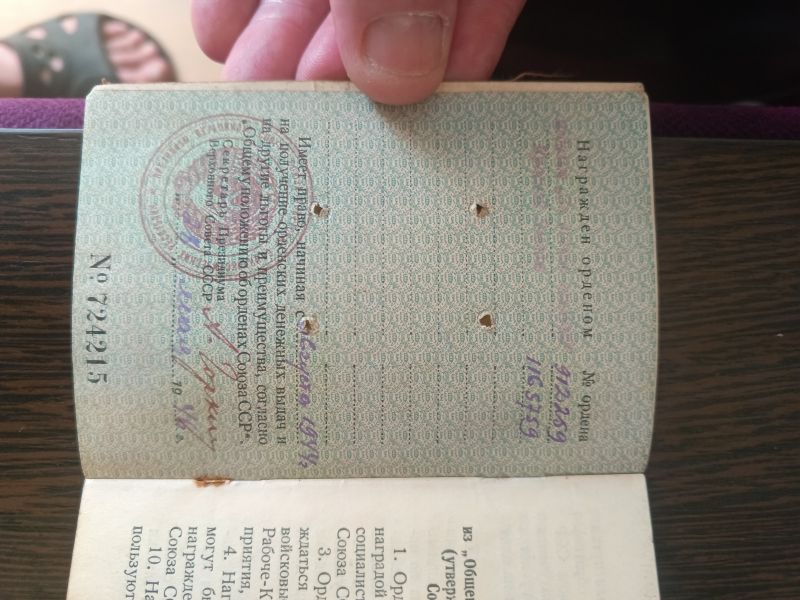 Награжден орденом № ордена
912259
1165759
Имеет право, начиная с августа 1944
на получение орденских денежных выдач и
на другие льготы и преимущества, согласно
„Общему положению об орденах Союза ССР“.
Секретарь Президиума
Верховного Совета СССР А. Горкин
19 46 г.
№ 724215
из „Общег
(утверж
Со
1. Орд
наградой
социалист
Союза Со
3. Орд
ждаться
войсковы
Рабоче-К
приятия,
4. Наг
могут бы
награжде
Союза С
10. На
пользуют